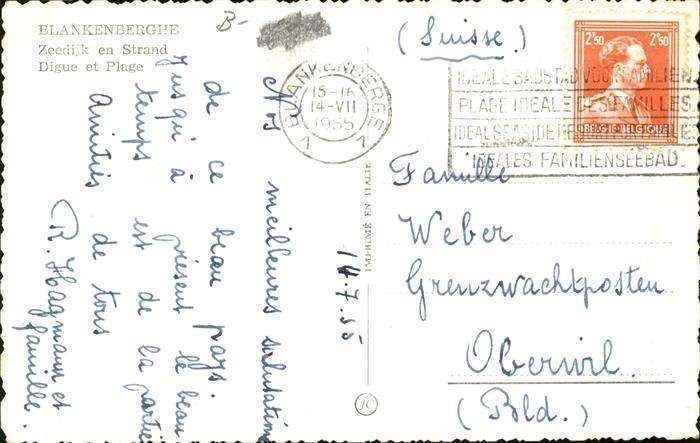 BLANKENBERGHE
Zeedijk en Strand
Digue et Plage
B-
Nos meilleures salutations
de ce beau pays.
Jusqu'à présent le beau
temps est de la partie
Amitiés de tous
R. Hagmann et
famille.
14.7.55
IMPRIMÉ EN ITALIE
BLANKENBERGE
15-16
14-VII
1955
V V
IDEALE BADSTAD VOOR FAMILIEN
PLAGE IDEALE DES FAMILLES
IDEAL SEASIDE RESORT
IDEALES FAMILIENSEEBAD
2F50 2F50
BELGIE-BELGIQUE
(Suisse.)
Famille
Weber
Grenzwachtposten
Oberwil.
(Bld.)